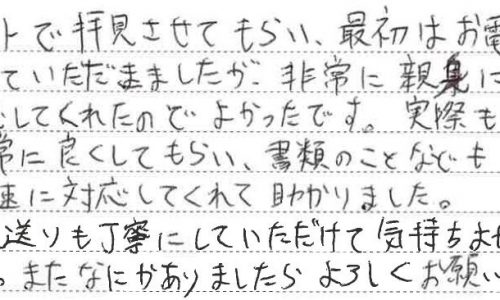 トで拝見させてもらい、最初はお電
ていただきましたが、非常に親身に
してくれたのでよかったです。実際も
常に良くしてもらい、書類のことなども
速に対応してくれて助かりました。
送りも丁寧にしていただけて気持ちよ
。またなにかありましたらよろしくお願い